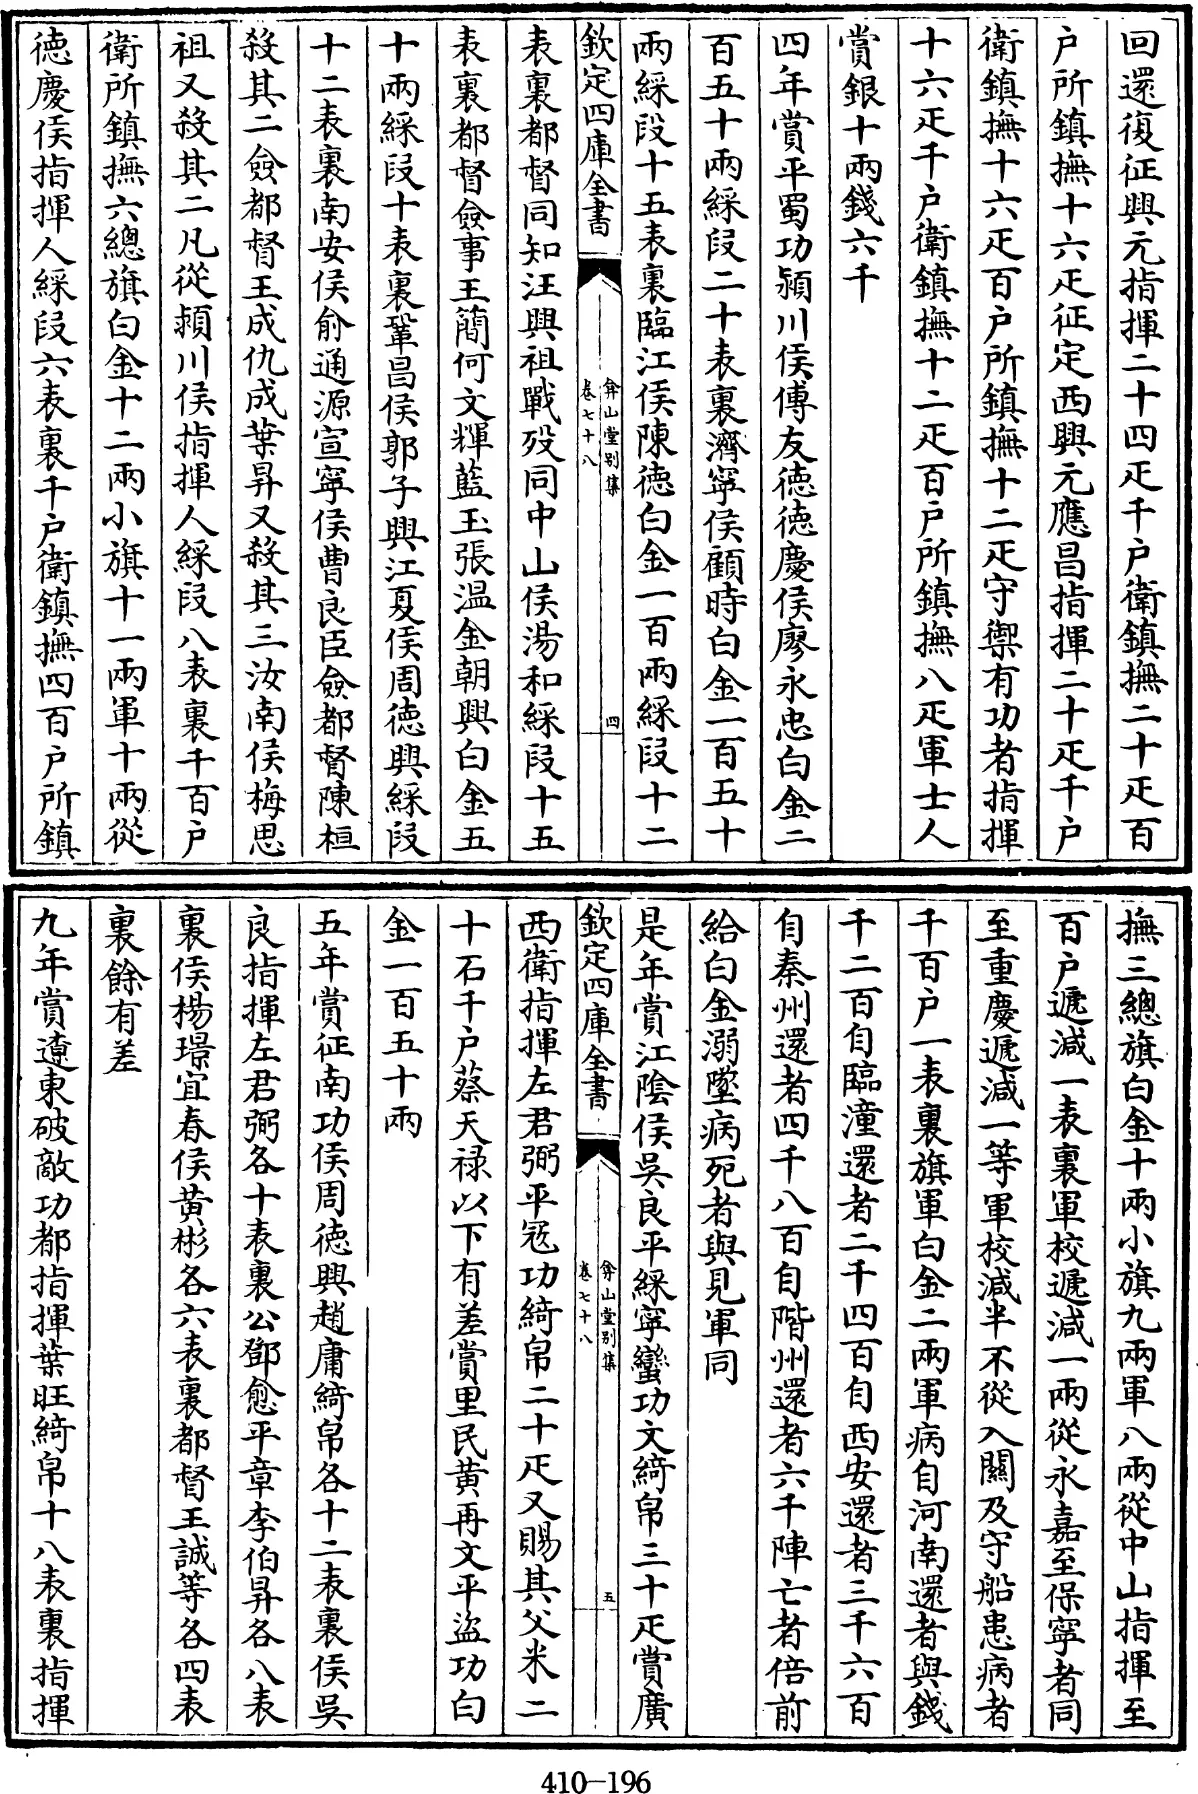 回還復征興元指揮二十四疋千户衛鎮撫二十疋百
户所鎮撫十六疋征定西興元應昌指揮二十疋千户
衛鎮撫十六疋百户所鎮撫十二疋守禦有功者指揮
十六疋千户衛鎮撫十二疋百户所鎮撫八疋軍士人
賞銀十兩錢六千
四年賞平蜀功潁川侯傅友德德慶侯廖永忠白金二
百五十兩綵段二十表裏濟寧侯顧時白金一百五十
兩綵段十五表裏臨江侯陳德白金一百兩綵段十二
欽定四庫全書
弇山堂别集
卷七十八
四
表裏都督同知汪興祖戰歿同中山侯湯和綵段十五
表裏都督僉事王簡何文輝藍玉張温金朝興白金五
十兩綵段十表裏鞏昌侯郭子興江夏侯周德興綵段
十二表裏南安侯俞通源宣寧侯曹良臣僉都督陳桓
殺其二僉都督王成仇成葉昇又殺其三汝南侯梅思
祖又殺其二凡從潁川侯指揮人綵段八表裏千百户
衛所鎮撫六總旗白金十二兩小旗十一兩軍十兩從
德慶侯指揮人綵段六表裏千户衛鎮撫四百户所鎮
撫三總旗白金十兩小旗九兩軍八兩從中山指揮至
百户遞減一表裏軍校遞減一兩從永嘉至保寧者同
至重慶遞減一等軍校減半不從入關及守船患病者
千百户一表裏旗軍白金二兩軍病自河南還者與錢
千二百自臨潼還者二千四百自西安還者三千六百
自秦州還者四千八百自階州還者六千陣亡者倍前
給白金溺墜病死者與見軍同
是年賞江陰侯吳良平綵寧蠻功文綺帛三十疋賞廣
欽定四庫全書
弇山堂别集
卷七十八
五
西衛指揮左君弼平冦功綺帛二十疋又賜其父米二
十石千户蔡天禄以下有差賞里民黄再文平盜功白
金一百五十兩
五年賞征南功侯周德興趙庸綺帛各十二表裏侯吳
良指揮左君弼各十表裏公鄧愈平章李伯昇各八表
裏侯楊璟宜春侯黄彬各六表裏都督王誠等各四表
裏餘有差
九年賞遼東破敵功都指揮葉旺綺帛十八表裏指揮
410-196